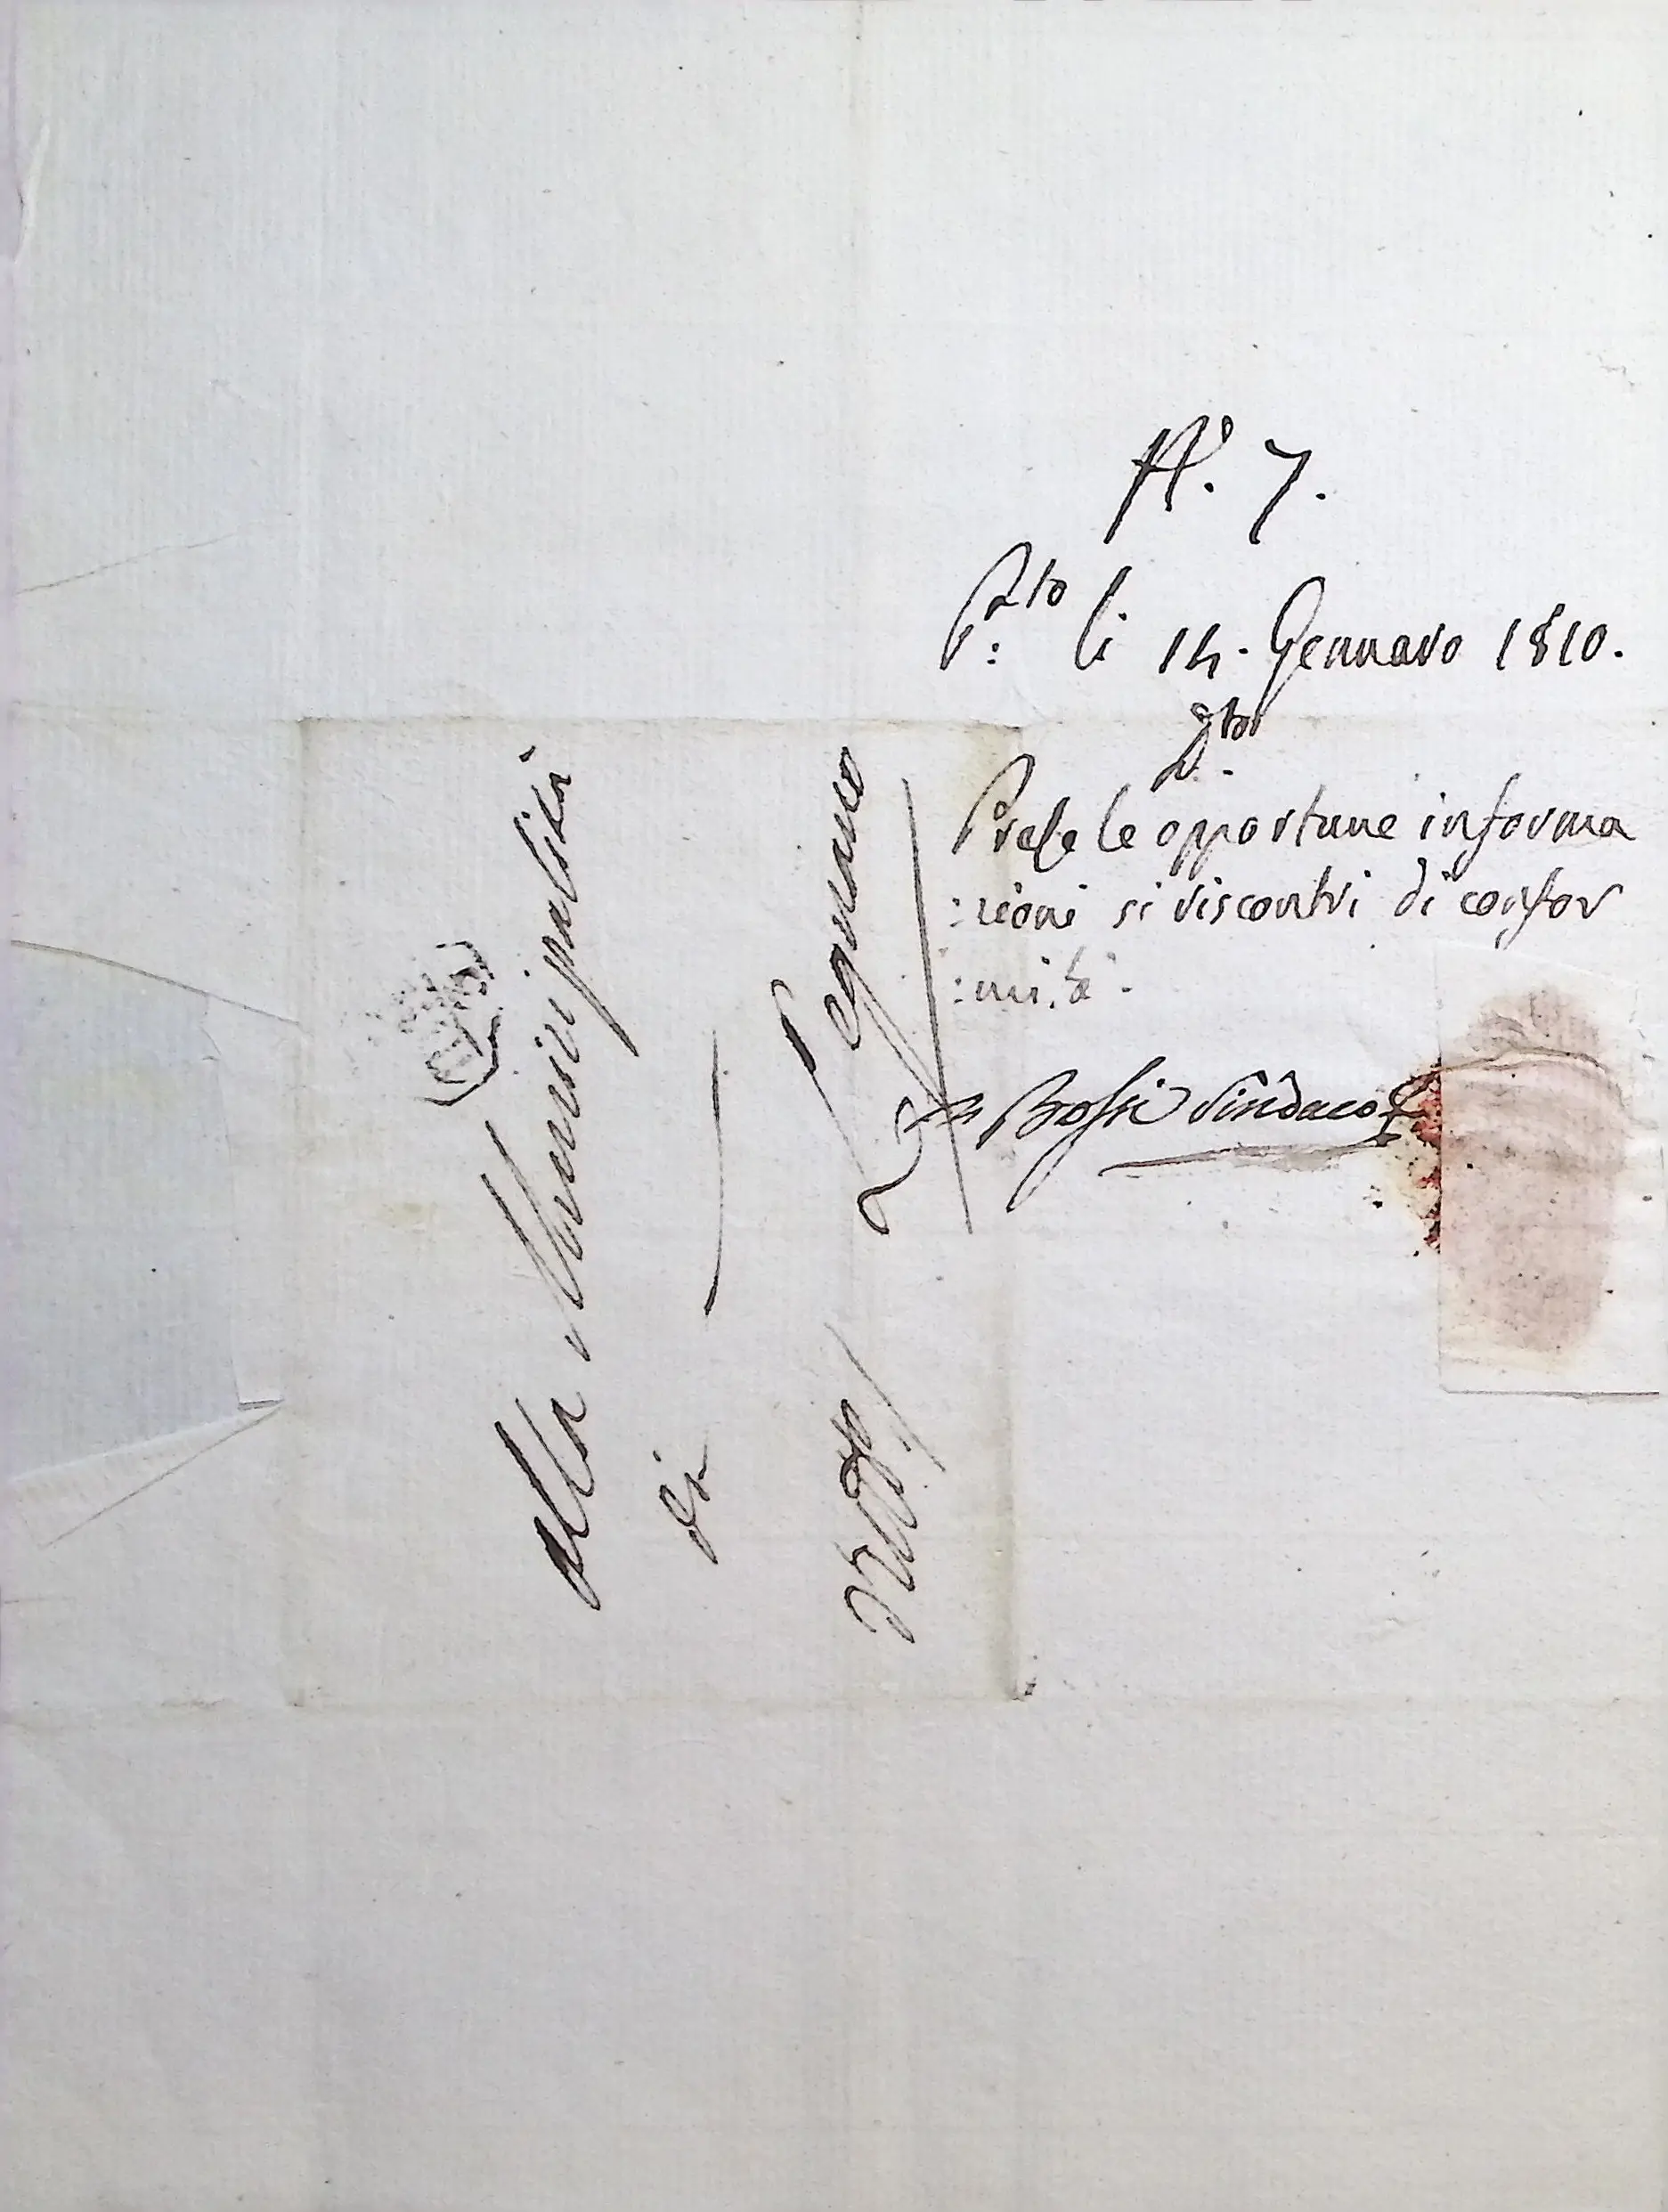 N.° 7.
P.to li 14. Gennaro 1810.
D.to
Prese le opportune informa
:zioni si riscontri di confor
:mità.
Bossi Sindaco
Alla Municipalità
di
Legnano